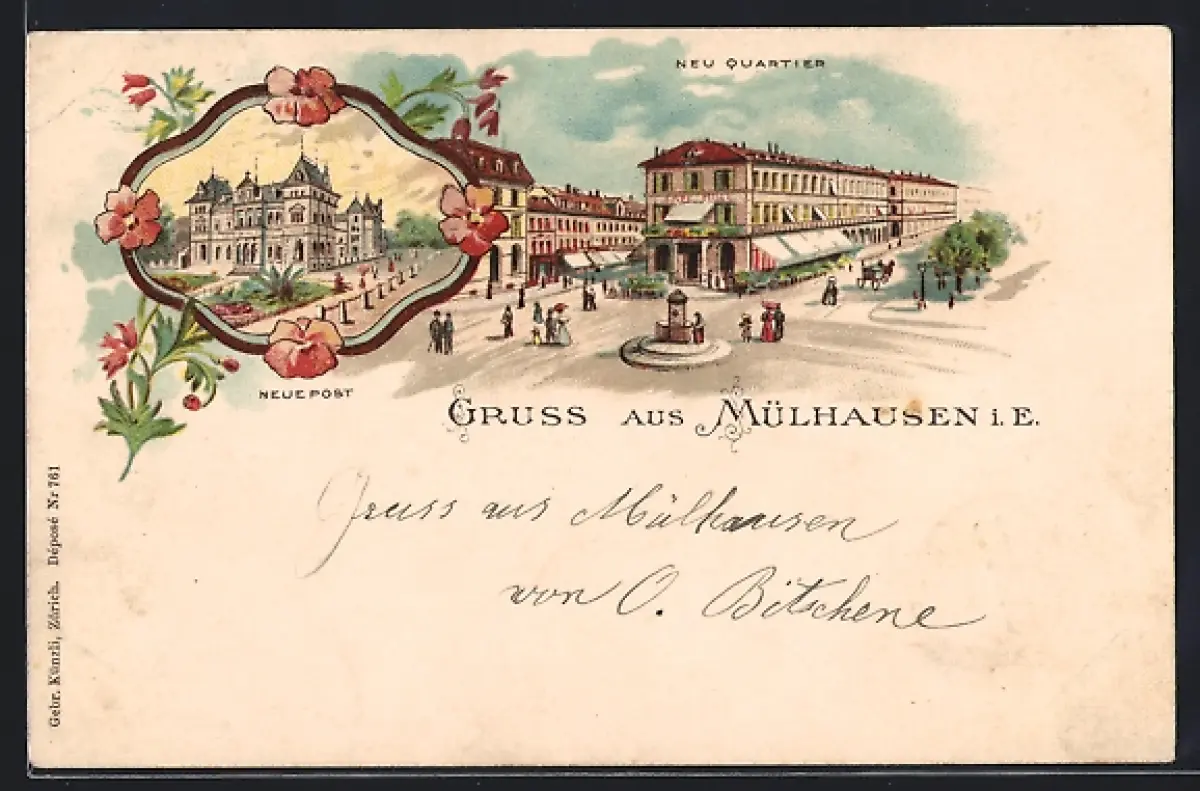 NEU QUARTIER
NEUE POST
GRUSS AUS MÜLHAUSEN i. E.
Gruss aus Mülhausen
von O. Bitschene
Gebr. Künzli, Zürich. Déposé Nr 761